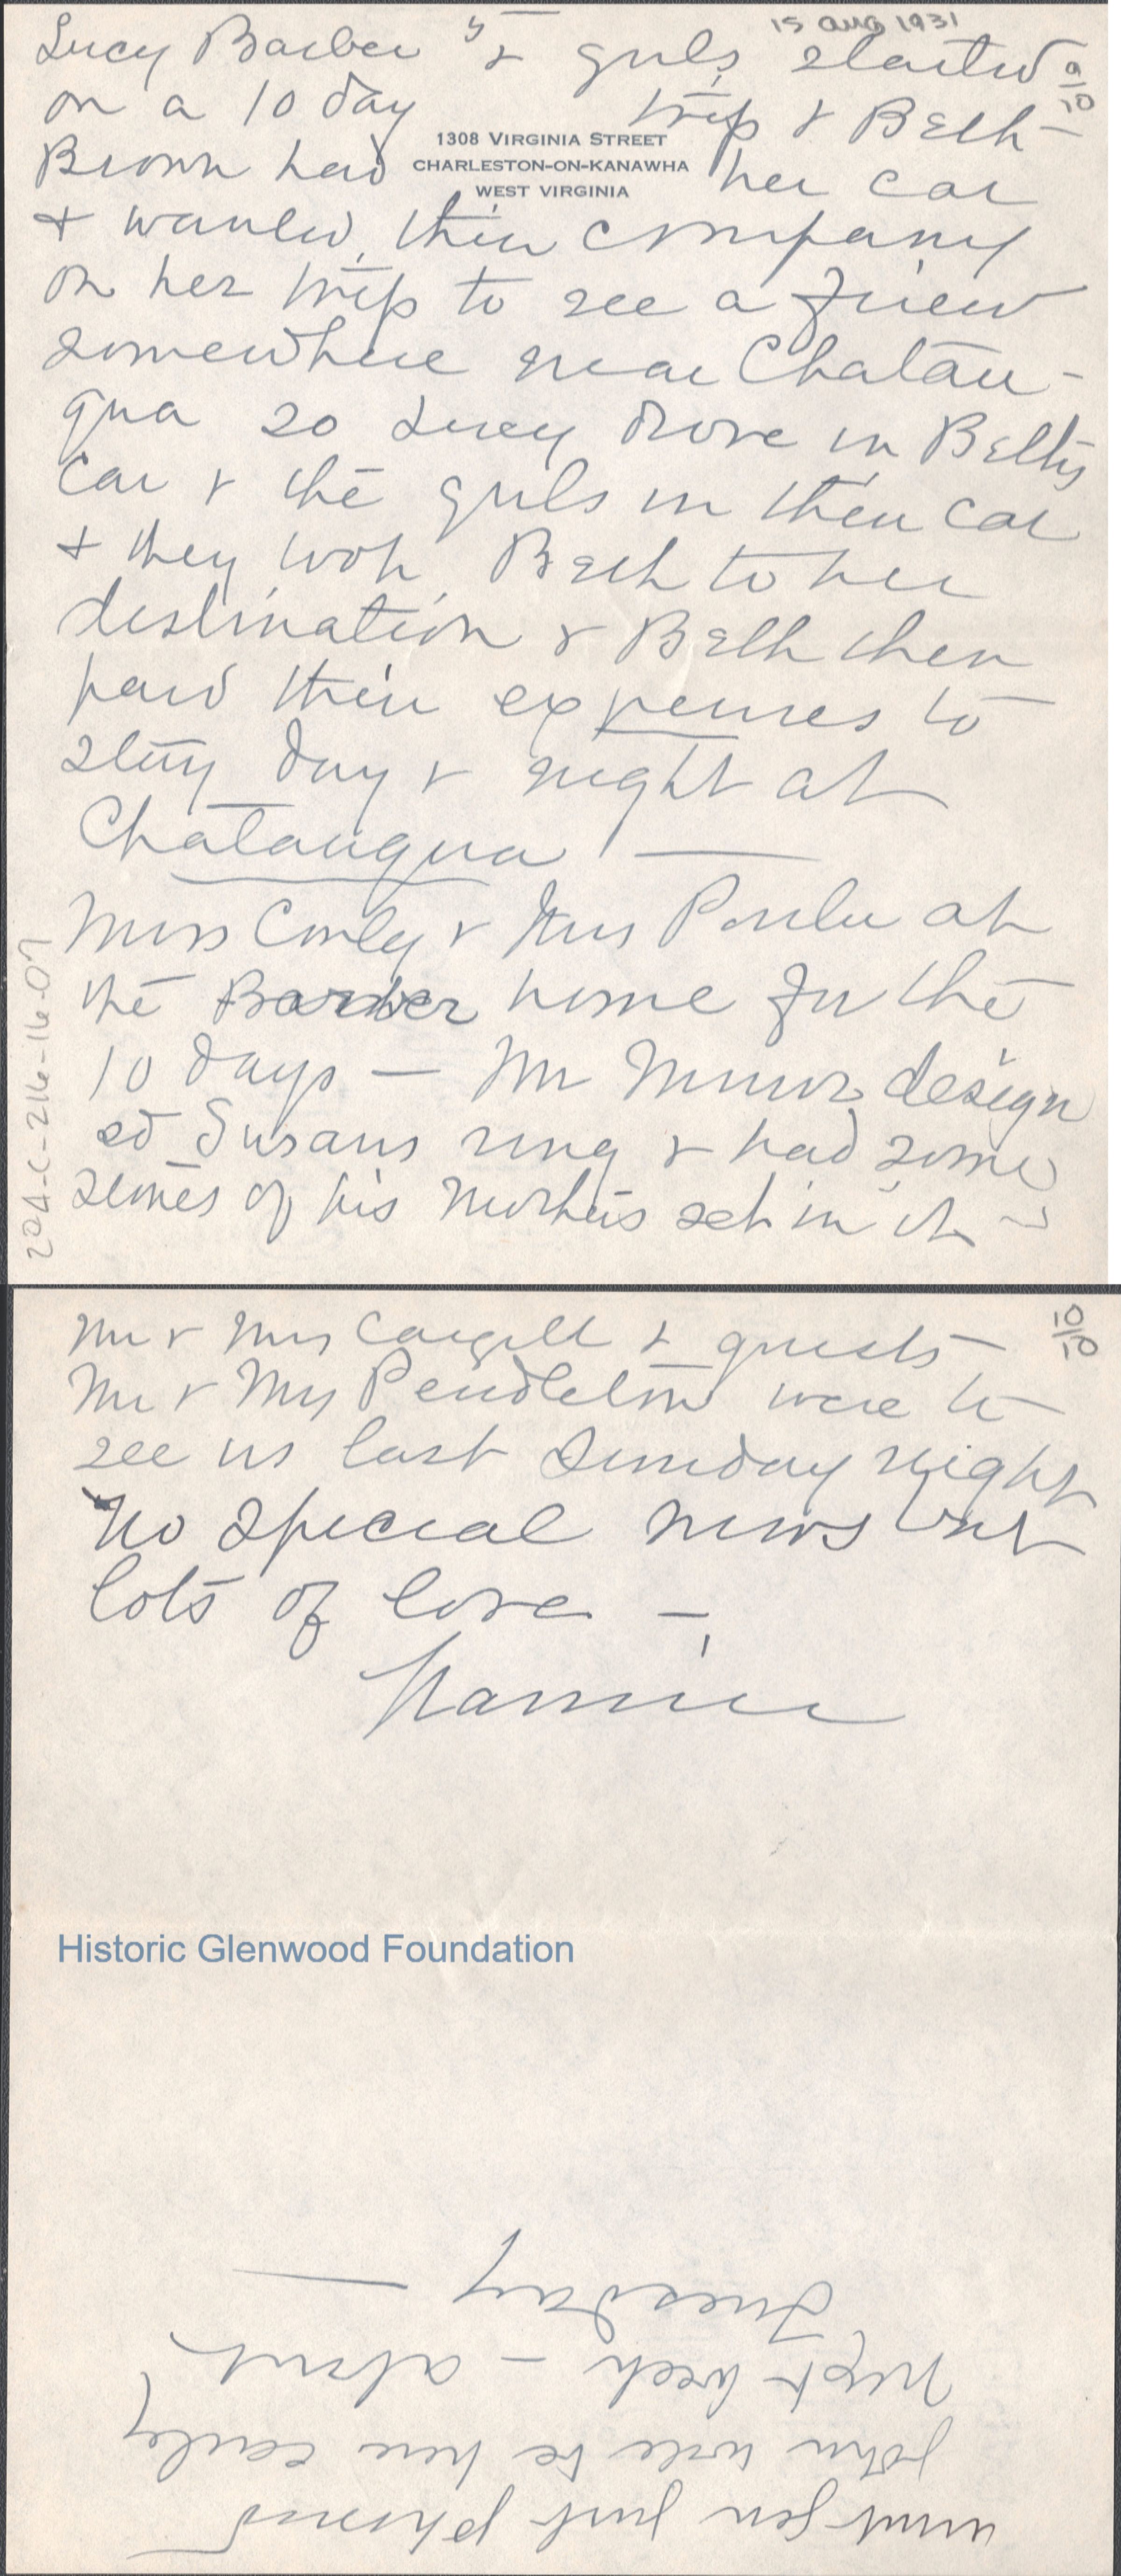 15 Aug 1931
9/10
Lucy Barber & girls started
on a 10 day trip & Beth
1308 VIRGINIA STREET
CHARLESTON-ON-KANAWHA
WEST VIRGINIA
Brown had her car
& wanted their company
on her trip to see a friend
somewhere near Chatau-
qua so Lucy drove in Beth's
car & the girls in their car
& they took Beth to her
destination & Beth then
paid their expenses to
stay day & night at
Chatauqua
Miss Conly & Mrs at
the Barber home for the
10 days — Mr Minor design
ed Susans ring & had some
stones of his Mothers set in it
204-C-216-16-07
10/10
Mr & Mrs Cargill & guests
Mr & Mrs Pendleton were to
see us last Sunday night
No special news but
lots of love —
Nannie
Historic Glenwood Foundation
Aunt Jen just phoned
John will be here early
next week — about
Tuesday —